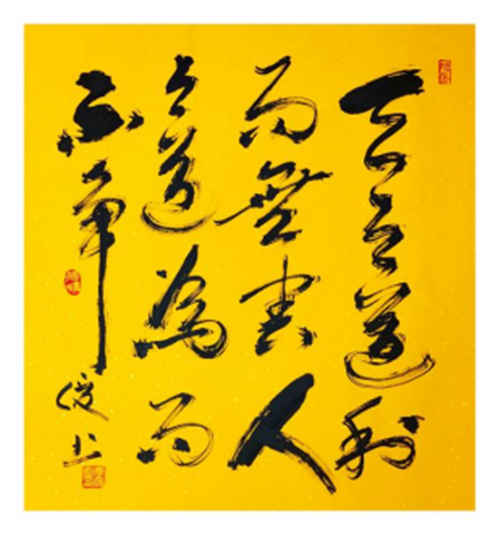 天之道利
而無害人
之道為而
不争
俊上